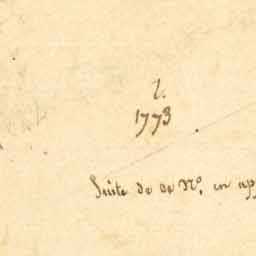 1.
1773
Suite de ce No. en app